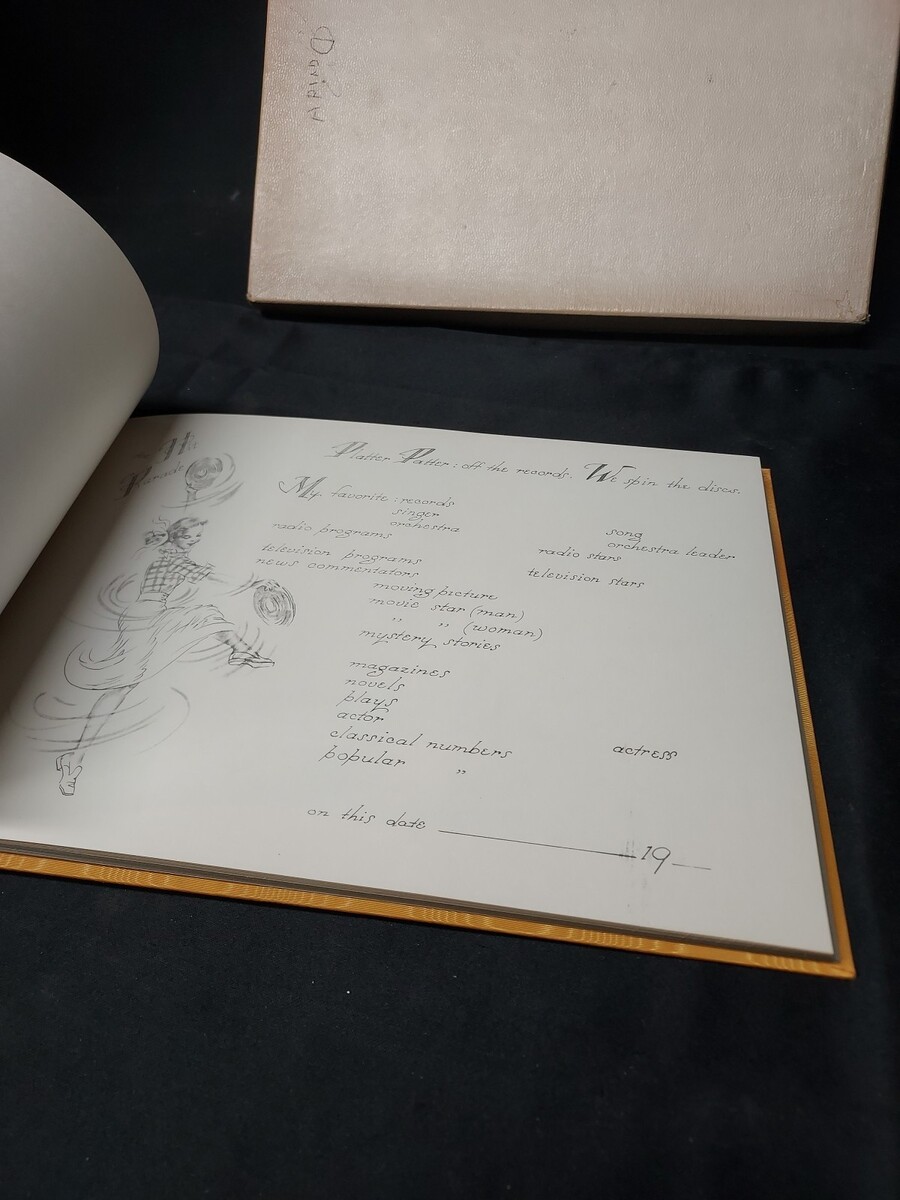 Hit
Parade
Platter Patter : off the records. We spin the discs.
My favorite : records
singer
song
orchestra
orchestra leader
radio programs
radio stars
television programs
television stars
news commentators
moving picture
movie star (man)
" " (woman)
mystery stories
magazines
novels
plays
actor
actress
classical numbers
popular "
on this date 19